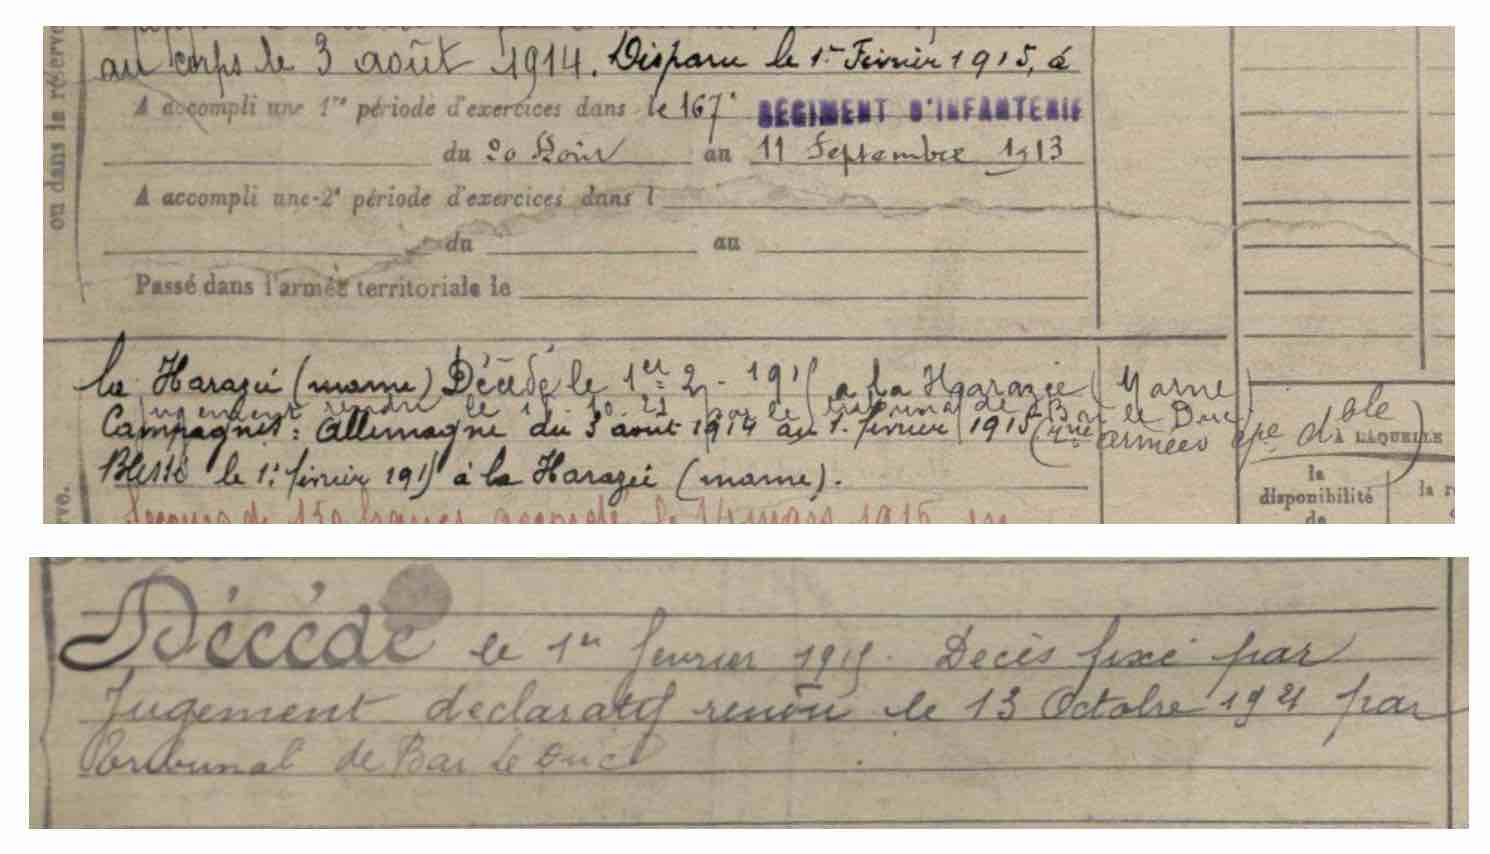 au corps le 3 août 1914. Disparu le 1er Février 1915, à
ou dans la réserve
A accompli une 1re période d'exercices dans le 167e RÉGIMENT D'INFANTERIE
du 20 Août au 11 Septembre 1913
A accompli une 2e période d'exercices dans l
du au
Passé dans l'armée territoriale le
la Harazée (marne) Décédé le 1er 2 - 1915 a la Haarazée (Marne)
Jugement rendu le 13.10.21 par le tribunal de Bar le Duc
Campagnes: Allemagne du 3 août 1914 au 1. février 1915 (armées
Blessé le 1: février 1915 à la Harazée (marne).
A LAQUELLE
la
disponibilité
de
la r
Secours de 150 francs accordé le 14 mars 1916
Décédé le 1er fevrier 1915. Decès fixé par
Jugement declaratif rendu le 13 Octobre 1921 par
Tribunal de Bar le Duc